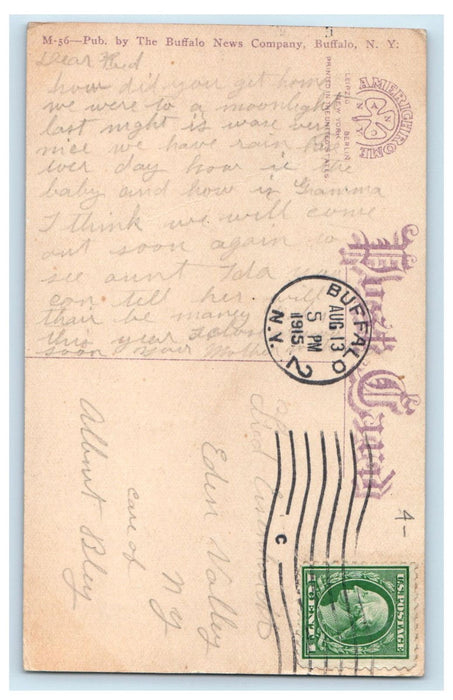 M-56—Pub. by The Buffalo News Company, Buffalo, N. Y.
Dear
how did you get home
we were to a moonlight
last night is wase very
nice we have rain
ever day how is the
baby and how is Gramma
I think we will come
out soon again to
see aunt Ida
con tell her will
thair be maney
this year
soon your Mother
AMERICHROME
A N C N Y
NEW YORK
LEIPZIG BERLIN
PRINTED IN UNITED STATES
Post Card
BUFFALO
AUG 13
5 PM
1915
N.Y.
2
C
4-
Eden Valley
NY
care of
Albert Bley
U.S. POSTAGE
1 CENT 1